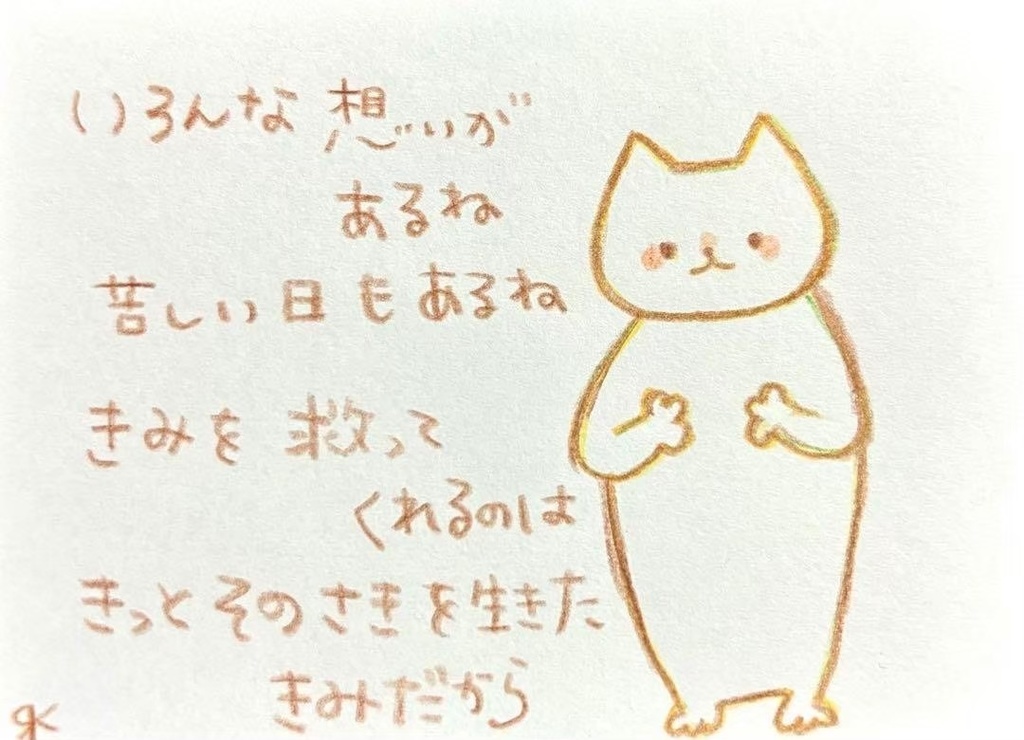 いろんな想いが
あるね
苦しい日もあるね
きみを救って
くれるのは
きっとそのさきを生きた
きみだから